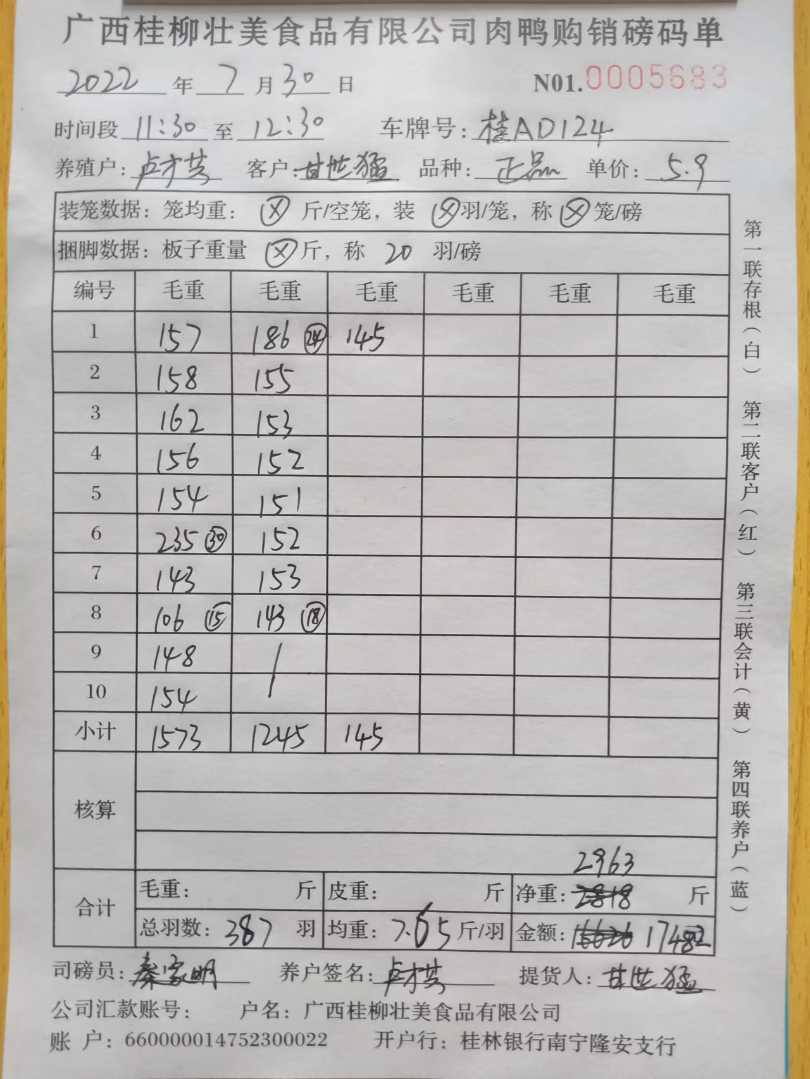 广西桂柳壮美食品有限公司肉鸭购销磅码单
2022 年 7 月 30 日 N01.0005683
时间段 11:30 至 12:30 车牌号: 桂AD124
养殖户: 卢才 客户: 甘世猛 品种: 正品 单价: 5.9
装笼数据: 笼均重: ⊗ 斤/空笼, 装 ⊗ 羽/笼, 称 ⊗ 笼/磅
捆脚数据: 板子重量 ⊗ 斤, 称 20 羽/磅
编号 毛重 毛重 毛重 毛重 毛重 毛重
1 157 186 ㉔ 145
2 158 155
3 162 153
4 156 152
5 154 151
6 235 ㉚ 152
7 143 153
8 106 ⑮ 143 ⑱
9 148
10 154
小计 1573 1245 145
核算
2963
合计 毛重: 斤 皮重: 斤 净重: 2818 斤
总羽数: 387 羽 均重: 7.65 斤/羽 金额: 16626 17482
司磅员: 秦家明 养户签名: 卢才 提货人: 甘世猛
公司汇款账号: 户名: 广西桂柳壮美食品有限公司
账 户: 660000014752300022 开户行: 桂林银行南宁隆安支行
第一联存根(白) 第二联客户(红) 第三联会计(黄) 第四联养户(蓝)